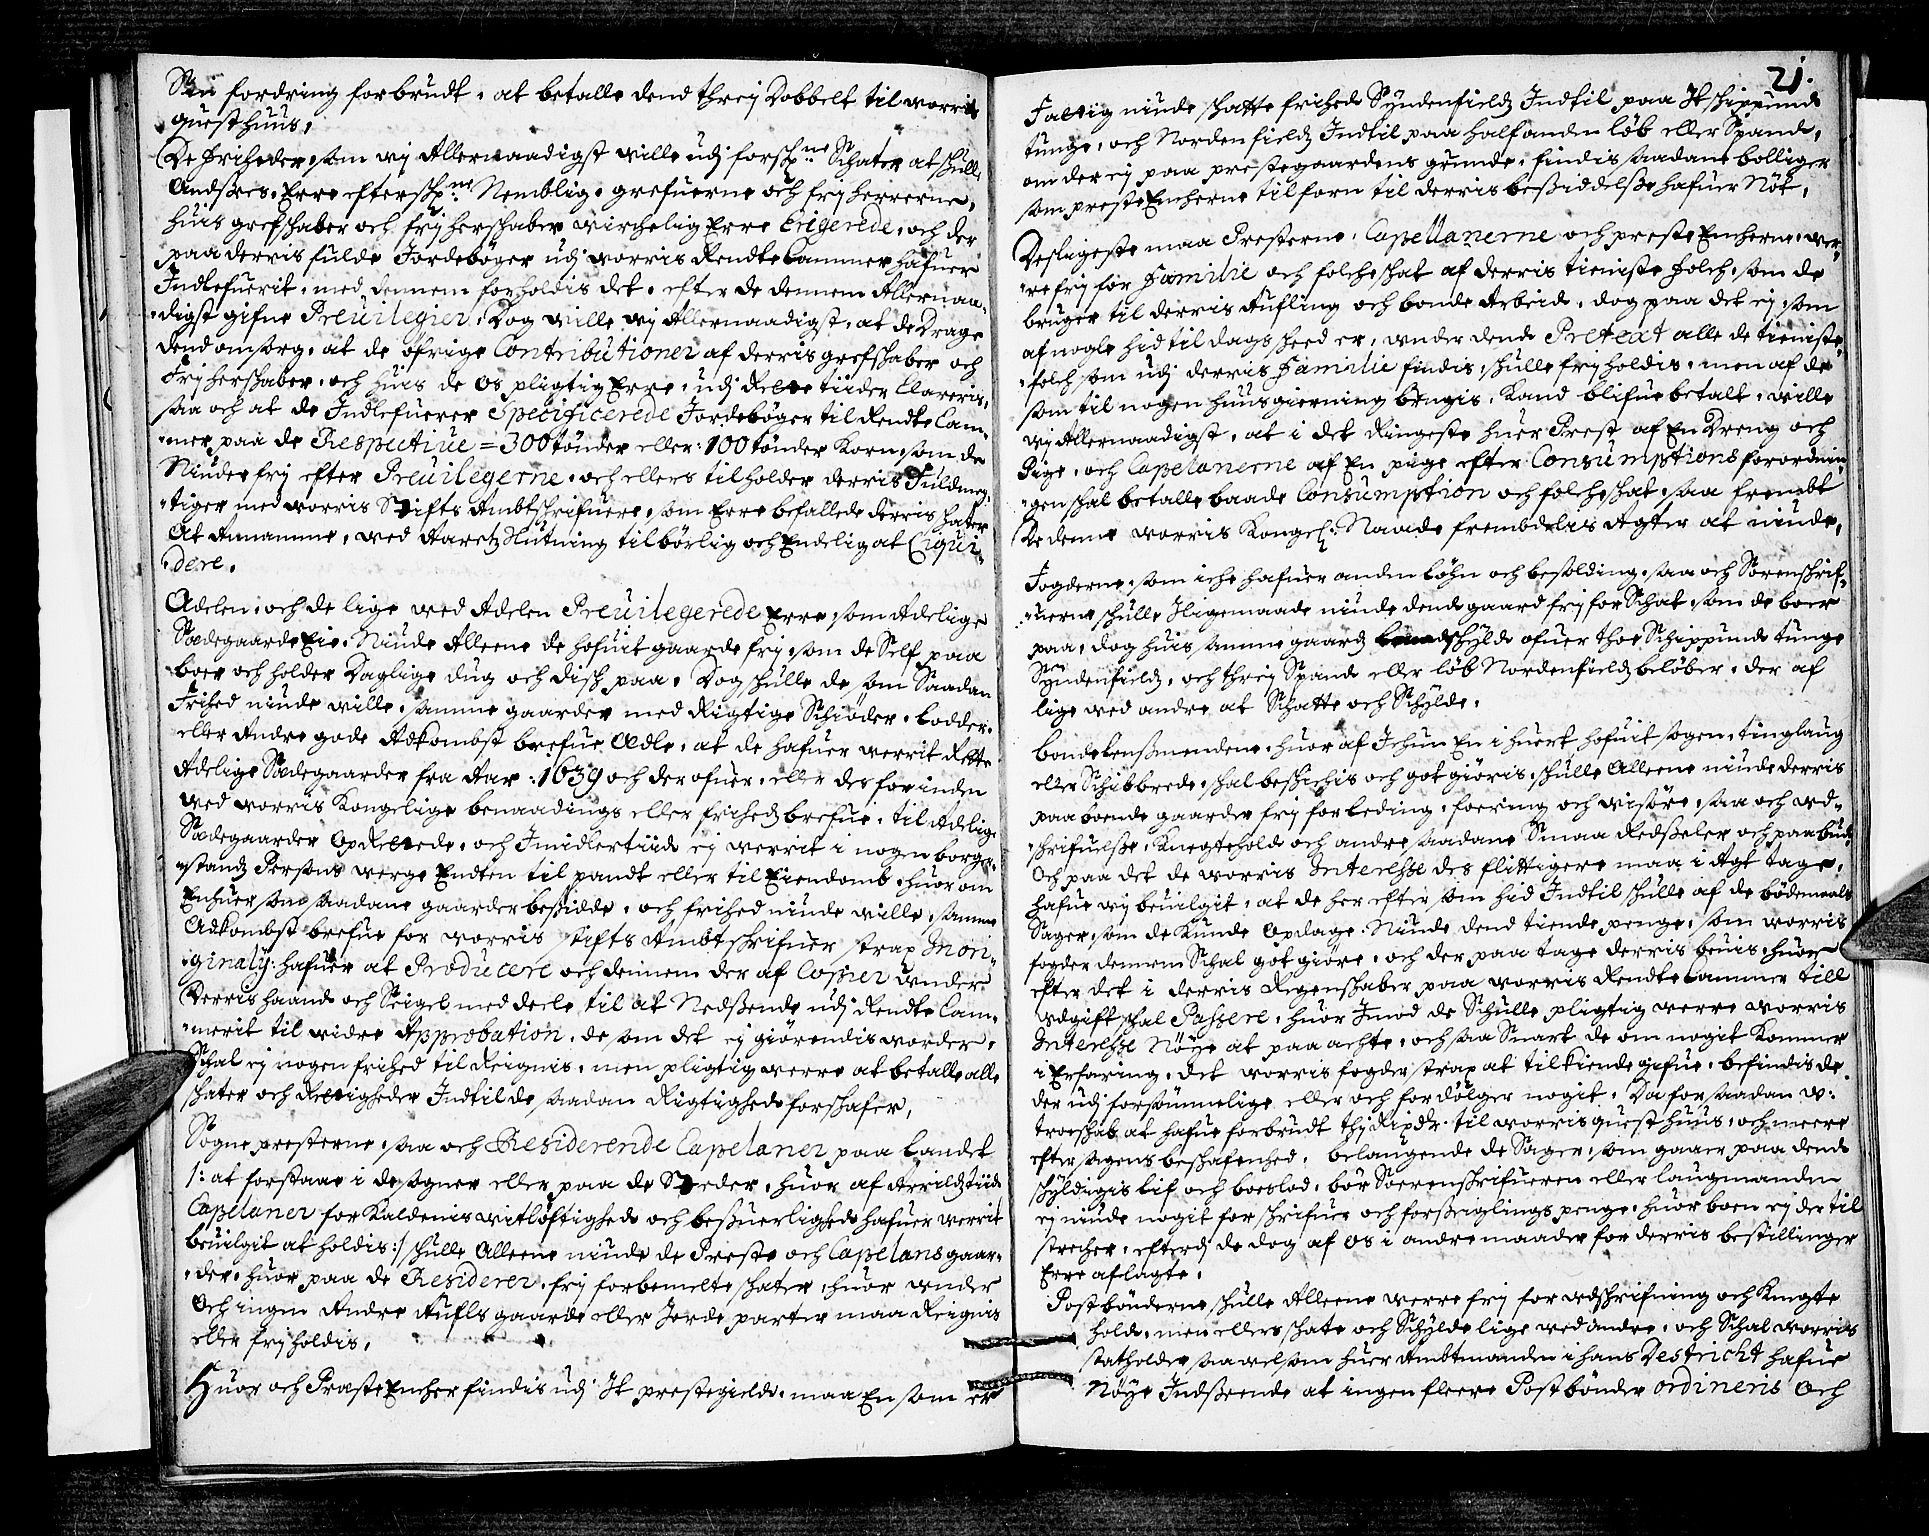 Sin fordring forbrudt, at betalle dend threj Dobbelt til worris
questhuus,
De friheder, som wj Allernaadigst wille udj forschne Schater at schulle
Andsees, Erre efterschne Nemblig, grefuerne och frj herrerne,
huis grefschaber och frj herschaber wirchelig Erre Erigerede, och der
paa derris fulde Jordebøger udj worris Rendte Cammer hafuer
Indlefuerit, med dennem forholdis det, efter de dennem Allernaa-
digst gifne Preuilegier, Dog wille wj Allernaadigst, at de Drage
dend omsorg, at de øfrige Contributioner af derris grefschaber och
Frj herschaber, och huis de os pligtig Erre, udj Rette tiider Clareris,
saa och at de Indlefuerer Specificerede Jordebøger til Rendte Cam-
mer, paa de Respectiue = 300 tønder eller: 100 tønder Korn, som de
Niuder frj efter Preuilegerne, och ellers tilholder derris Fuldmeg-
tiger med worris Stifts Ambtschrifuere, som Erre befallede derris schater
At Annamme, wed Aaretz Slutning tilbørlig och Endelig at Liqui-
dere.
Adelen, och de lige wed Adelen Preuilegerede Erre, som Adelige
Sædegaarde Eie, Niude Alleene de hofuit gaarde frj, som de Self paa
boer och holder Daglige dug och disch paa, Dog schulle de som Saadan
Frihed niude wille, samme gaarder med Rigtige Schiøder, Lodder,
eller Andre gode Adkombst brefue Ædle, at de hafuer werrit Rette
Adelige Sædegaarder fra Aar: 1639 och der ofuer, eller des forinden
wed worris Kongelige benaadings eller friheds brefue, til Adelige
Sædegaarder Oprettede, och Imidlertiid ej werrit i nogen borger-
standz Persons werge Endten til pandt eller til Eiendomb, huor om
Enhuer som saadane gaarder besidde, och frihed niude wille, samme
Adkombst brefue for worris stifts Ambtschrifuer strax In ori-
ginalj hafuer at Producere och dennem der af Copier Under
Derris haand och Seigel meddeele, til at Nedsende udj Rendte Cam-
merit til widre Approbation, de som det ej giørendis worder,
Schal ej nogen frihed til Reignis, men pligtig werre at betalle alle
schater och Rettigheder Indtil de saadan Rigtigheds forschafer,
Sogne presterne, saa och Residerende Capelaner paa Landet
/: at forstaae i de sogner eller paa de Steder, huor af Arrildz tiid
Capelaner for Kaldenis witløftighed och besuerligheds hafuer werrit
beuilgit at holdis :/ schulle Alleene niude de Preste och Capelans gaar-
der, huor paa de Residerer, frj forbemelte schater, huor under
Och ingen Andre Aufls gaarde eller Jorde parter maa Reignis
eller frj holdis,
Huor och Præste Encher findis udj It prestegield, maa En som er
21.
Fattig niude schatte frihed Syndenfields Indtil paa It schippund
tunge, och Nordenfields Indtil paa halfanden løb eller Spand,
om der ej paa prestegaardens grunde, findis saadane bolliger
som preste Encherne tilforn til derris besiddelse hafuer Nøt,
Desligeste maa Presterne, Capellanerne och preste Encherne, wer-
re frj for Familie och folche schat af derris tieniste folch, som de
bruger til derris Aufling och bonde Arbeid, dog paa det ej, som
af nogle hid til dags scheed er, under dend Pretext alle de tieniste
folch som udj derris Familie findis, schulle frj holdis, men af de
som til nogen huusgierning brugis, Kand blifue betalt, wille
wj Allernaadigst, at i det Ringeste huer Prest af En Dreng och
Pige, och Capelanerne af En pige efter Consumptions forordnin-
gen schal betalle baade Consumption och folcheschat, saa frembt
De denne worris Kongel: Naade frembdelis Agter at niude,
Fogderne, som iche hafuer anden løhn och besolding, saa och Sorenschrif-
uerne schulle Iligemaade niude dend gaard frj for Schat, som de boer
paa, dog huis samme gaardz schyld ofuer thoe Schippund tunge
Syndenfields, och threj Spand eller løb Nordenfields beløber, der af
lige wed andre at Schatte och Schylde.
Bondelensmendene, huor af Ichun En i huert hofuit sogen, tinglaug
eller Schibbrede, schal beschichis och gotgiøris, schulle Alleene niude derris
paaboende gaarder frj for leding, foering och wisøre, saa och ud-
schrifuelse, Knegtehold och andre saadane Smaa Redseler och paabud
Och paa det de worris Interesse des flittigere maa i Agt tage,
hafue wj beuilgit, at de her efter som hid Indtil schulle af de bødemaals
Sager, som de Kunde Opdage, Niude dend tiende penge, som worris
fogder dennem Schal got giøre, och der paa tage derris beuis, huor
efter det i derris Regenschaber paa worris Rendte Cammer till
Udgift schal Passere, huor Imod de Schulle pligtig werre worris
Interesse Nøye at paaachte, och saa Snart de om nogit Kommer
i Erfaring, det worris fogder strax at tilkiende gifue, befindis de
der udj forsømmelige, eller och fordølger nogit, Da for saadan u-
troeschab at hafue forbrudt thj Rixdr: til worris questhuus, och meere
efter sagens beschafenhed, belangende de Sager, som gaaer paa dend
schyldigis lif och boeslod, bør Soerenschrifueren eller laugmanden
ej niude nogit for schrifuer och forseiglings penge, huor boen ej der til
strecher, efterdj de dog af os i andre maader for derris bestillinger
Erre aflagte.
Postbønderne schulle Alleene werre frj for udschrifning och Knegte
hold, men ellers schate och Schylde lige wed andre, och Schal worris
statholder saawelsom huer Ambtmanden i hans Destricht hafue
Nøye Indseende at ingen fleere Postbønder ordineris Och